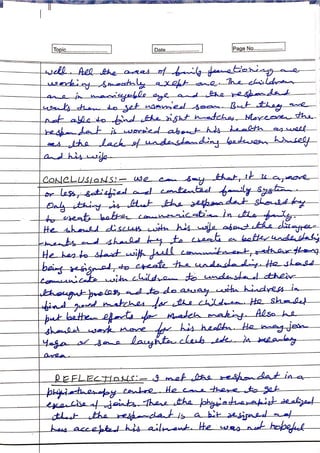 Topic
Date
Page No
well. All the areas of family functioning are
working smoothly except one. The children
are in marriageable age and the respondent
wants them to get married soon. But they are
not able to find the right matches. Moreover the
respondent is worried about his health as well
as the lack of understanding between himself
and his wife.
CONCLUSIONS:- We can say that, it is a, more
or less, satisfied and contented family system.
Only thing is that the respondent should try
to create better communication in the family.
He should discuss with his wife about the disagree-
ments and should try to create a better understanding
He has to start with full commitment, rather than
being resigned, to create the understanding. He should
communicate with children to understand their
thought process and to do away with hindress in
find good matches for the children. He should
put better efforts for match making. Also he
should work more for his health. He may join
Yoga or some laughter club etc. in nearby
area.
REFLECTIONS:- I met the respondent in a
physiotherapy centre. He came there to get
exercise of joints. There the physiotherapist realized
that the respondent is a bit resigned and
has accepted his ailment. He was not hopeful